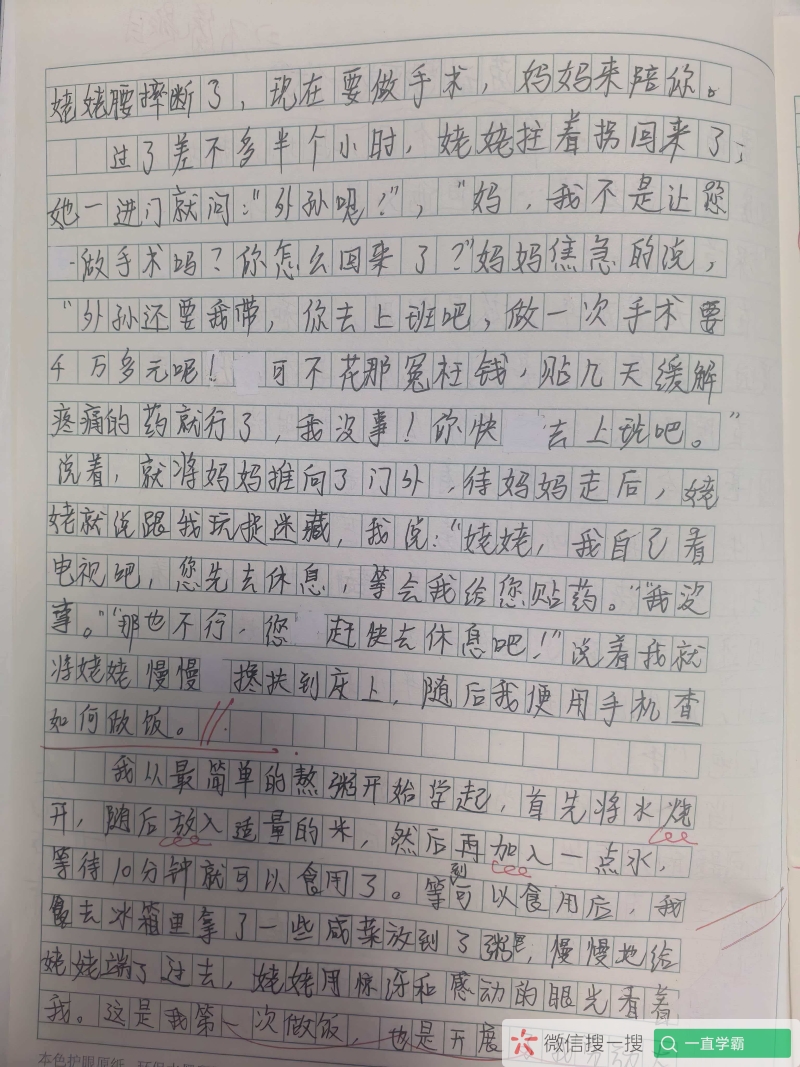 姥姥腰摔断了，现在要做手术，妈妈来陪你。
过了差不多半个小时，姥姥拄着拐回来了；
她一进门就问："外孙呢！"，"妈，我不是让您
做手术吗？你怎么回来了？"妈妈焦急的说，
"外孙还要我带，你去上班吧，做一次手术要
4万多元呢！可不花那冤枉钱，贴几天缓解
疼痛的药就行了，我没事！你快去上班吧。"
说着，就将妈妈推向了门外，待妈妈走后，姥
姥就说跟我玩捉迷藏，我说："姥姥，我自己看
电视吧，您先去休息，等会我给您贴药。""我没
事。""那也不行，您赶快去休息吧！"说着我就
将姥姥慢慢搀扶到床上，随后我便用手机查
如何做饭。
我以最简单的熬粥开始学起，首先将水烧
开，随后放入适量的米，然后再加入一点水，
等待10分钟就可以食用了。等到可以食用后，我
去冰箱里拿了一些咸菜放到了粥里，慢慢地给
姥姥端了过去，姥姥用惊讶和感动的眼光看着
我。这是我第一次做饭，也是开展
微信搜一搜
一直学霸
本色护眼原纸